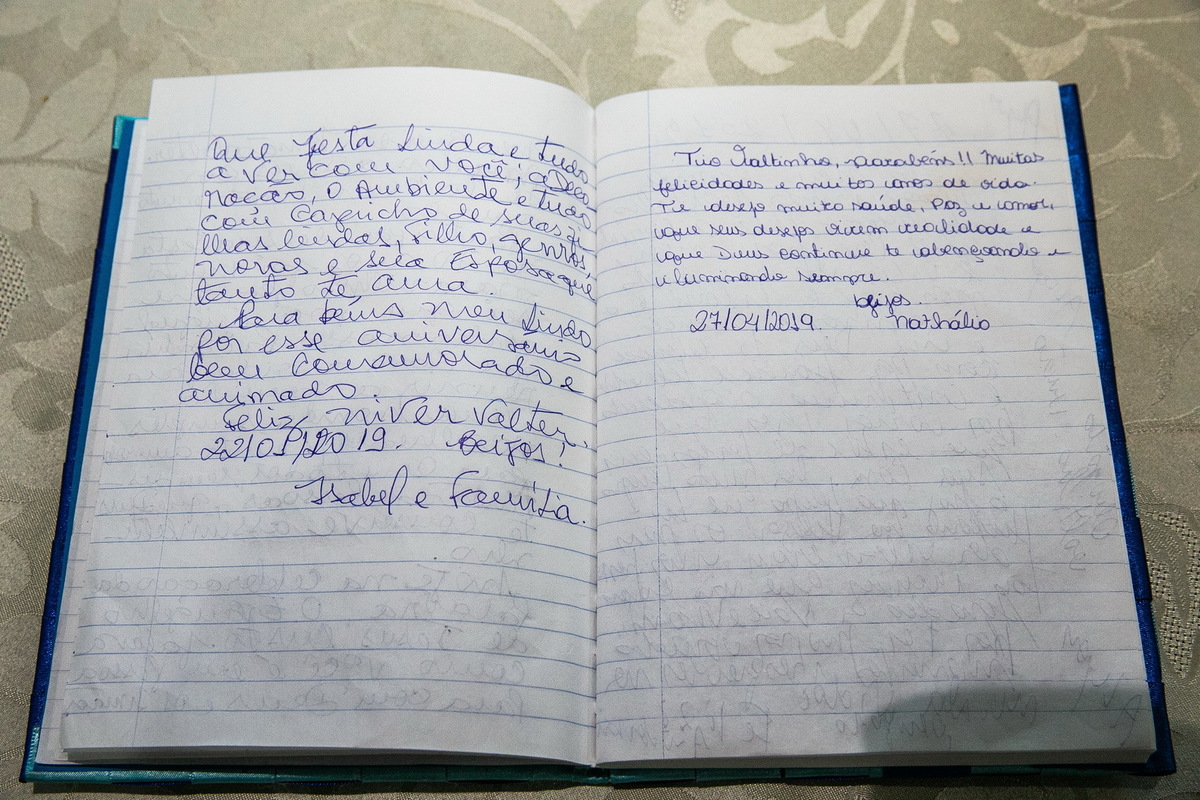 Que festa linda e tudo
a ver com você, a Deco
ração, o Ambiente e tudo
com Capricho de suas fi
lhas lindas, filho, genros,
noras e sua Esposa que
tanto te ama.
Para béns meu lindo
por esse aniversário
bem comemorado e
animado.
Feliz niver Valter.
2019. Beijos!
Isabel e Família.
Tio Valtinho, parabéns!! Muitas
felicidades e muitos anos de vida.
Te desejo muita saúde, Paz e amor,
que seus desejos virem realidade e
que Deus continue te abençoando e
iluminando sempre.
beijos.
27/04/2019. Nathália